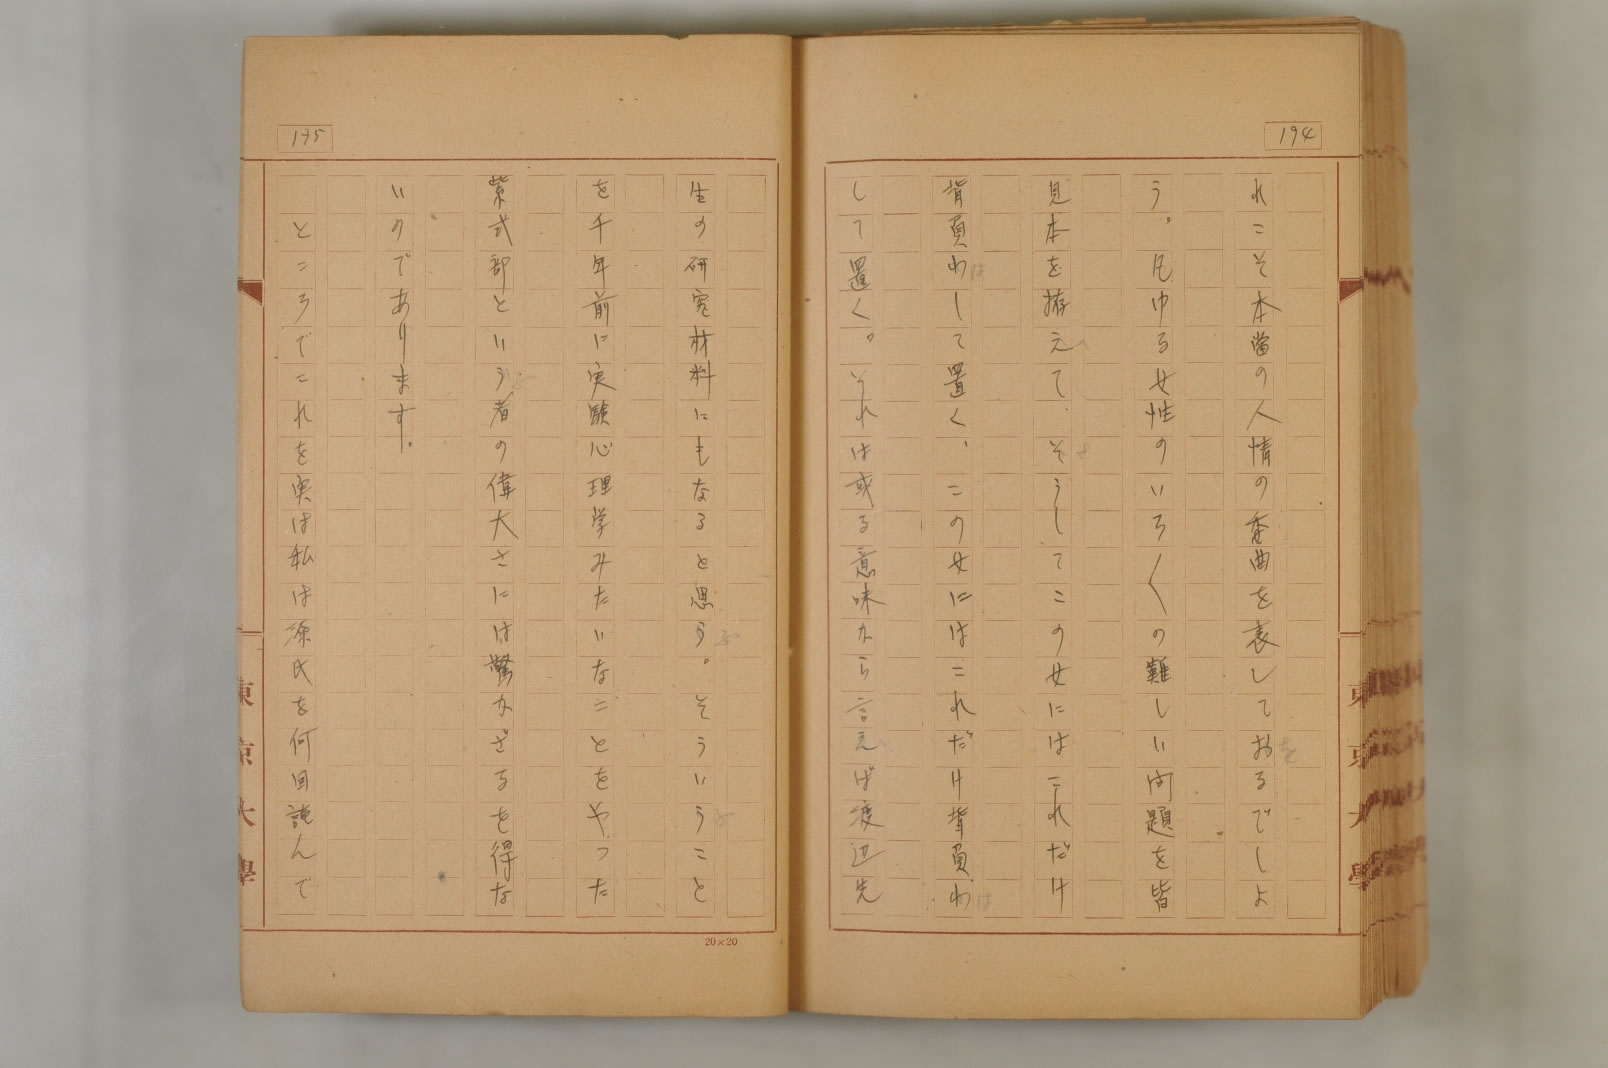 194
れこそ本當の人情の委曲を表しておるでしよ
を
う。凡ゆる女性のいろ〱の難しい問題を皆
見本を揃えて、そうしてこの女にはこれだけ
背負わして置く、この女にはこれだけ背負わ
は
は
して置く。それは或る意味から言えば渡辺先
東京大學
195
生の研究材料にもなると思う。そういうこと
を千年前に実験心理学みたいなことをやった
紫式部という者の偉大さには驚かざるを得な
いのであります。
ところでこれを実は私は源氏を何回読んで
東京大學
20×20